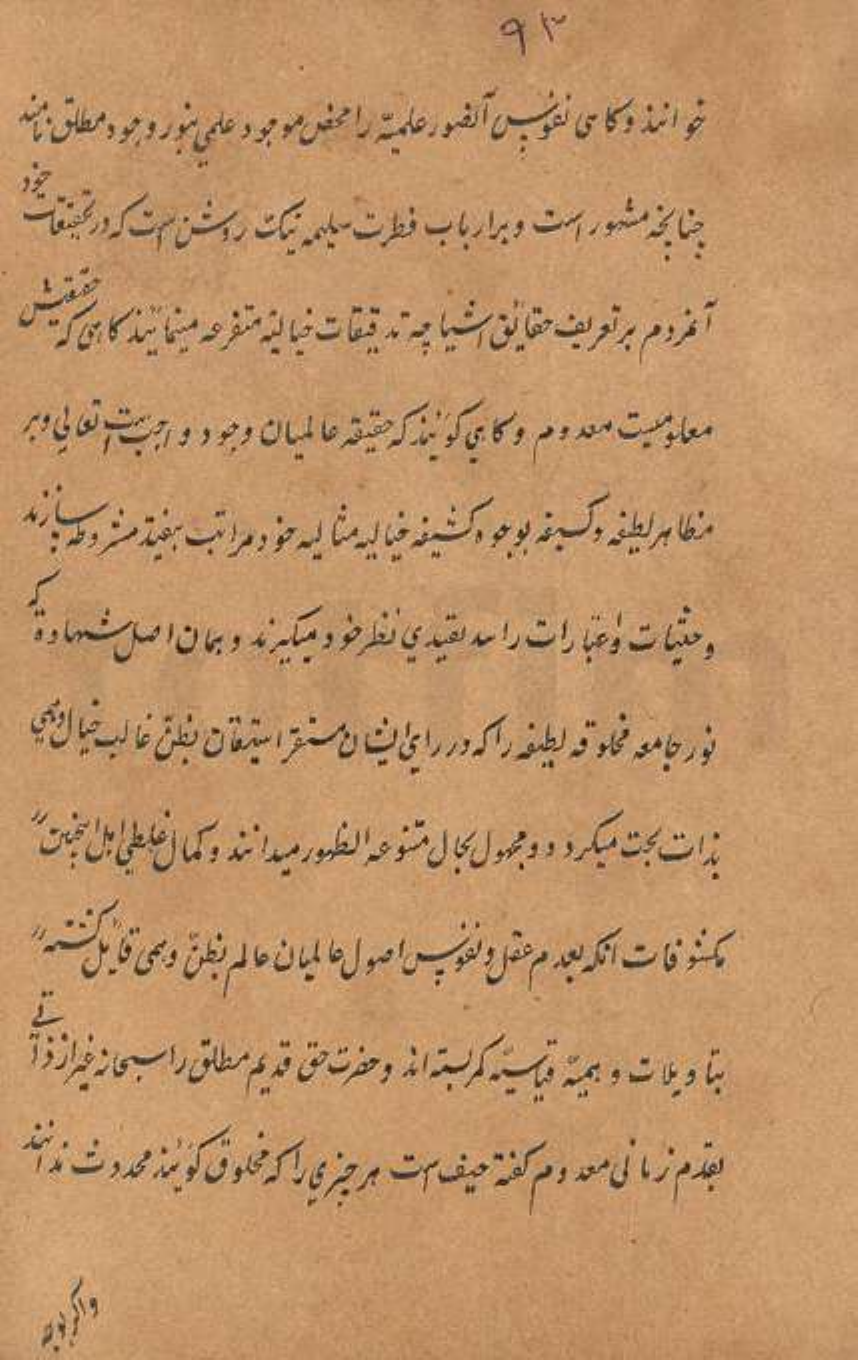 ۹۳
خوانند و کاهی نفوس آنصور علمیّه را محض موجود علمي بنور وجود مطلق نامند
چنانچه مشهور است و بر ارباب فطرت سلیمه نیک روشن است که در تحقیقات خود
آنمردم بر تعریف حقائق اشیا چه تدقیقات خیالیّه متفرعه مینمایند کاهی که حقیقتش
معلومیست معدوم و کاهي کویند که حقیقه عالمیان وجود واجب است تعالی و بر
مظاهر لطیفه و کسیفه بوجوه کشیفه خیالیه مثالیه خود مراتب مشروطه سازند
و حثیات و اعتبارات را تقیدي نظر خود میکیرند و همان اصل شهادة که
نور جامعه مخلوقه لطیفه را که در رای ایشان مستقر استیقان بظن غالب خیال وهمي
بذات بحت میکرد و مجهول بحال متنوعه الظهور میدانند و کمال غلطي اهل
مکشوفات انکه بعدم عقل و نفوس اصول عالمیان عالم بظنّ وهمی قائل کشته
بتاویلات وهمیّه قیاسیّه کمر بسته اند و حضرت حق قدیم مطلق را سبحانه غیر از ذاتی
بقدم زمانی معدوم کفته حیف است هر چیزي را که مخلوق کویند محدوث ندانند
واکر چه